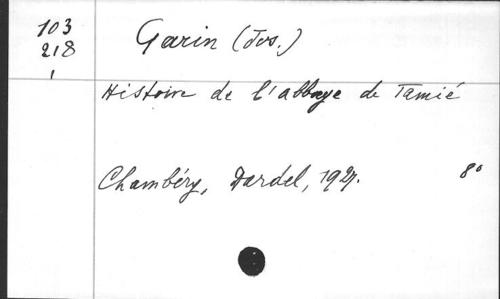 103
218
1
Garin (Jos.)
Histoire de l'abbaye de Tamié
Chambéry, Dardel, 1927. 8°